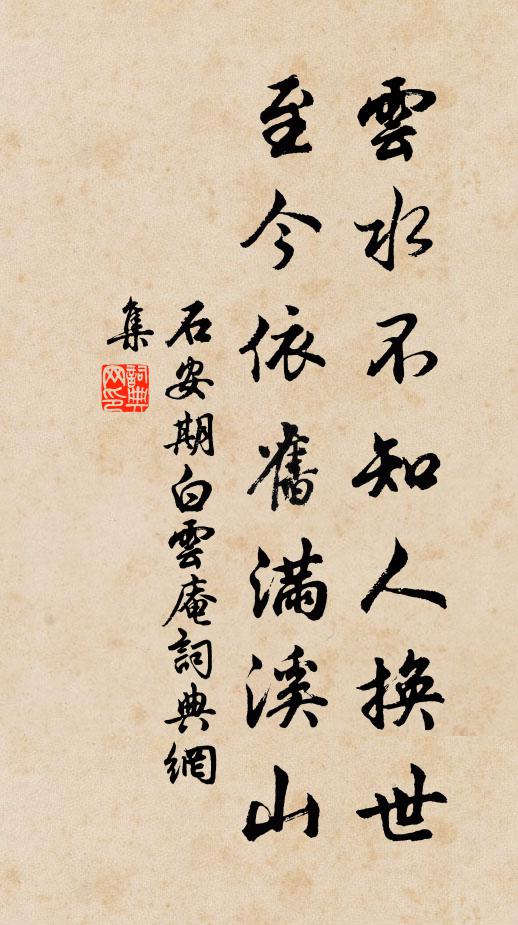 雲水不知人換世
至今依舊滿溪山
石安期白雲庵詞典網
集
詞典
网印